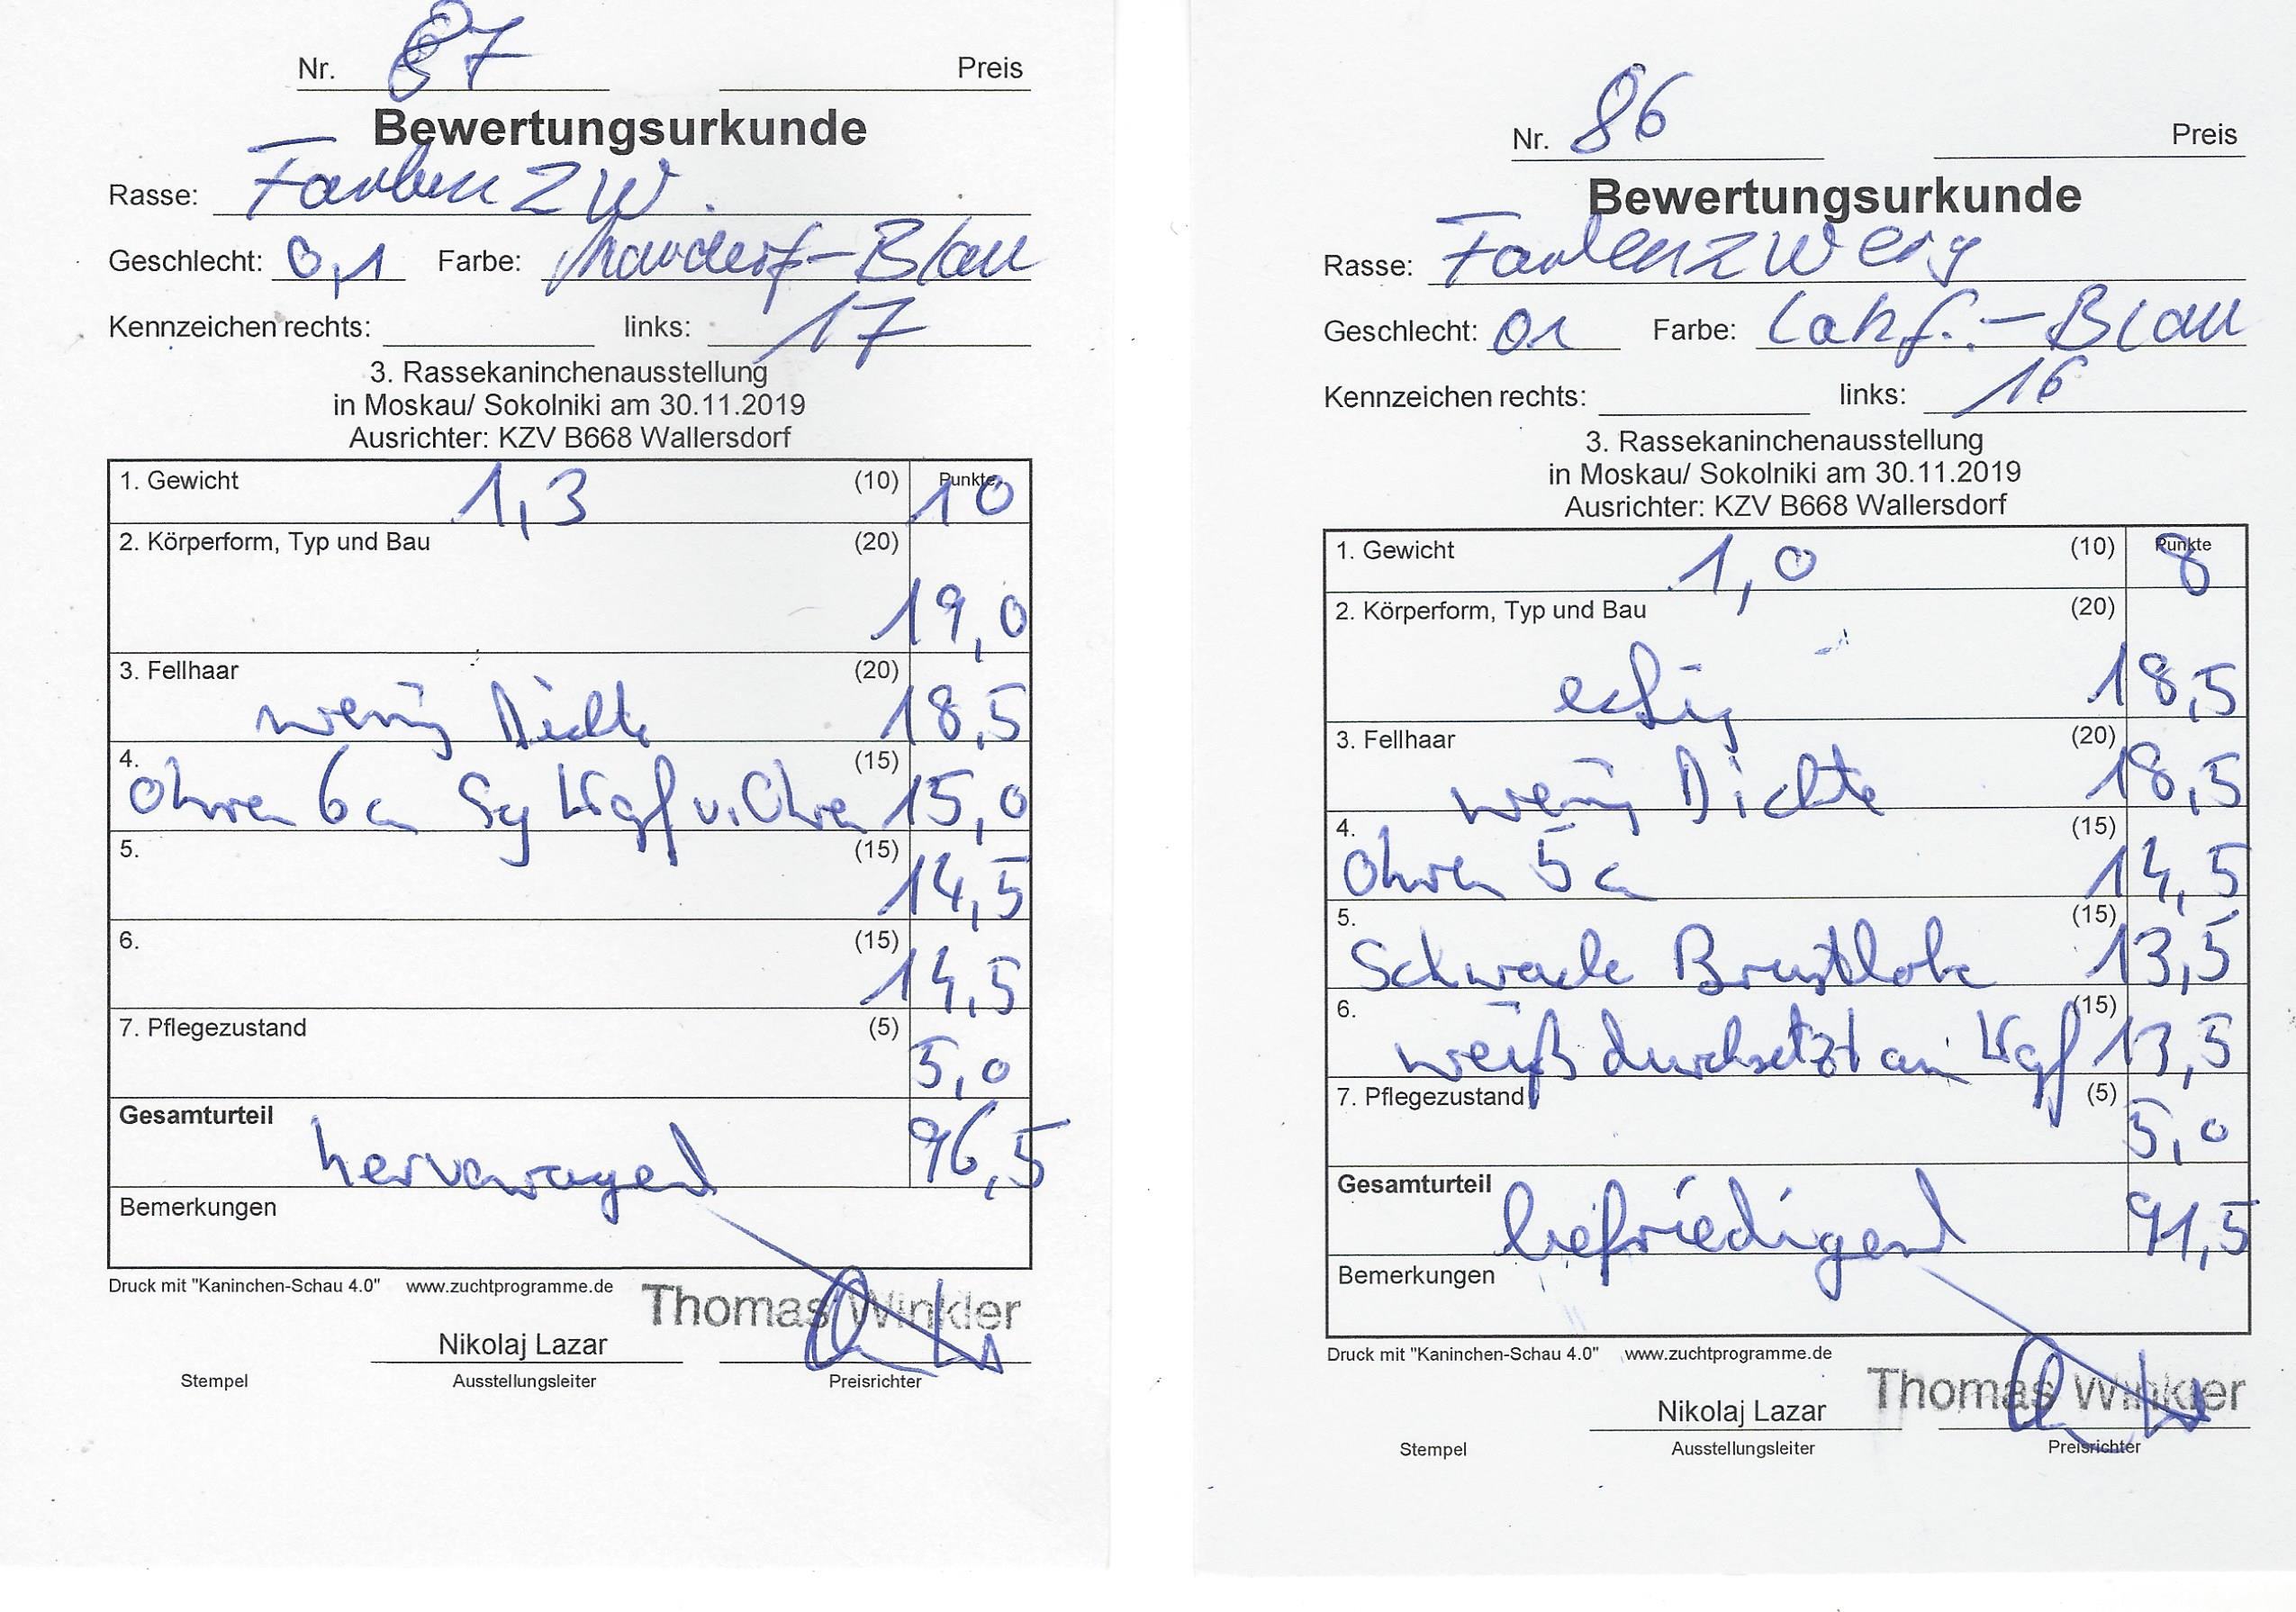 Nr. 87 Preis
Bewertungsurkunde
Rasse: Farbenzw.
Geschlecht: 0,1 Farbe: -Blau
Kennzeichen rechts: links: 17
3. Rassekaninchenausstellung
in Moskau/ Sokolniki am 30.11.2019
Ausrichter: KZV B668 Wallersdorf
1. Gewicht 1,3 (10) Punkte 10
2. Körperform, Typ und Bau (20) 19,0
3. Fellhaar (20)
wenig Dichte 18,5
4. (15)
Ohren 6 c Sg Kopf u. Ohren 15,0
5. (15) 14,5
6. (15) 14,5
7. Pflegezustand (5) 5,0
Gesamturteil hervorragend 96,5
Bemerkungen
Druck mit "Kaninchen-Schau 4.0" www.zuchtprogramme.de
Thomas Winkler
Nikolaj Lazar
Stempel Ausstellungsleiter Preisrichter
Nr. 86 Preis
Bewertungsurkunde
Rasse: Farbenzwerg
Geschlecht: 01 Farbe: -Blau
Kennzeichen rechts: links: 16
3. Rassekaninchenausstellung
in Moskau/ Sokolniki am 30.11.2019
Ausrichter: KZV B668 Wallersdorf
1. Gewicht 1,0 (10) Punkte 8
2. Körperform, Typ und Bau (20)
eckig 18,5
3. Fellhaar (20)
wenig Dichte 18,5
4. (15)
Ohren 5 c 14,5
5. (15)
Schwache 13,5
6. (15)
weiß durchsetzt am Kopf 13,5
7. Pflegezustand (5) 5,0
Gesamturteil befriedigend 91,5
Bemerkungen
Druck mit "Kaninchen-Schau 4.0" www.zuchtprogramme.de
Thomas Winkler
Nikolaj Lazar
Stempel Ausstellungsleiter Preisrichter